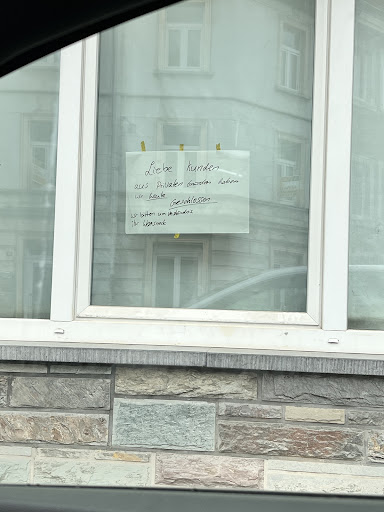 Liebe Kunden
aus Privaten Gründen haben
wir heute
Geschlossen
wir bitten um Verständnis
Ihr